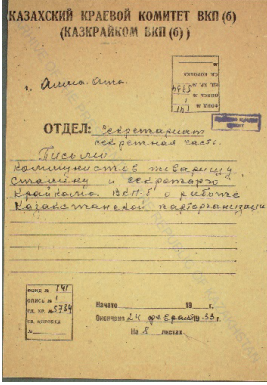 КАЗАХСКИЙ КРАЕВОЙ КОМИТЕТ ВКП(б)
(КАЗКРАЙКОМ ВКП(б))
г. Алма-Ата
ОТДЕЛ: Секретариат
секретная часть.
Письма
коммунистов товарищу
Сталину и секретарю
Крайкома ВКП/б о работе
Казахстанской парторганизации
Начато 19 г.
Окончено 24 февраля 1933 г.
На 8 листах.
ФОНД № 141
ОПИСЬ № 1
ЕД. ХР. № 5734